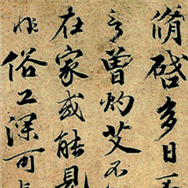 脩啓多日不
言曾灼艾不
在家或能見
非俗工深可